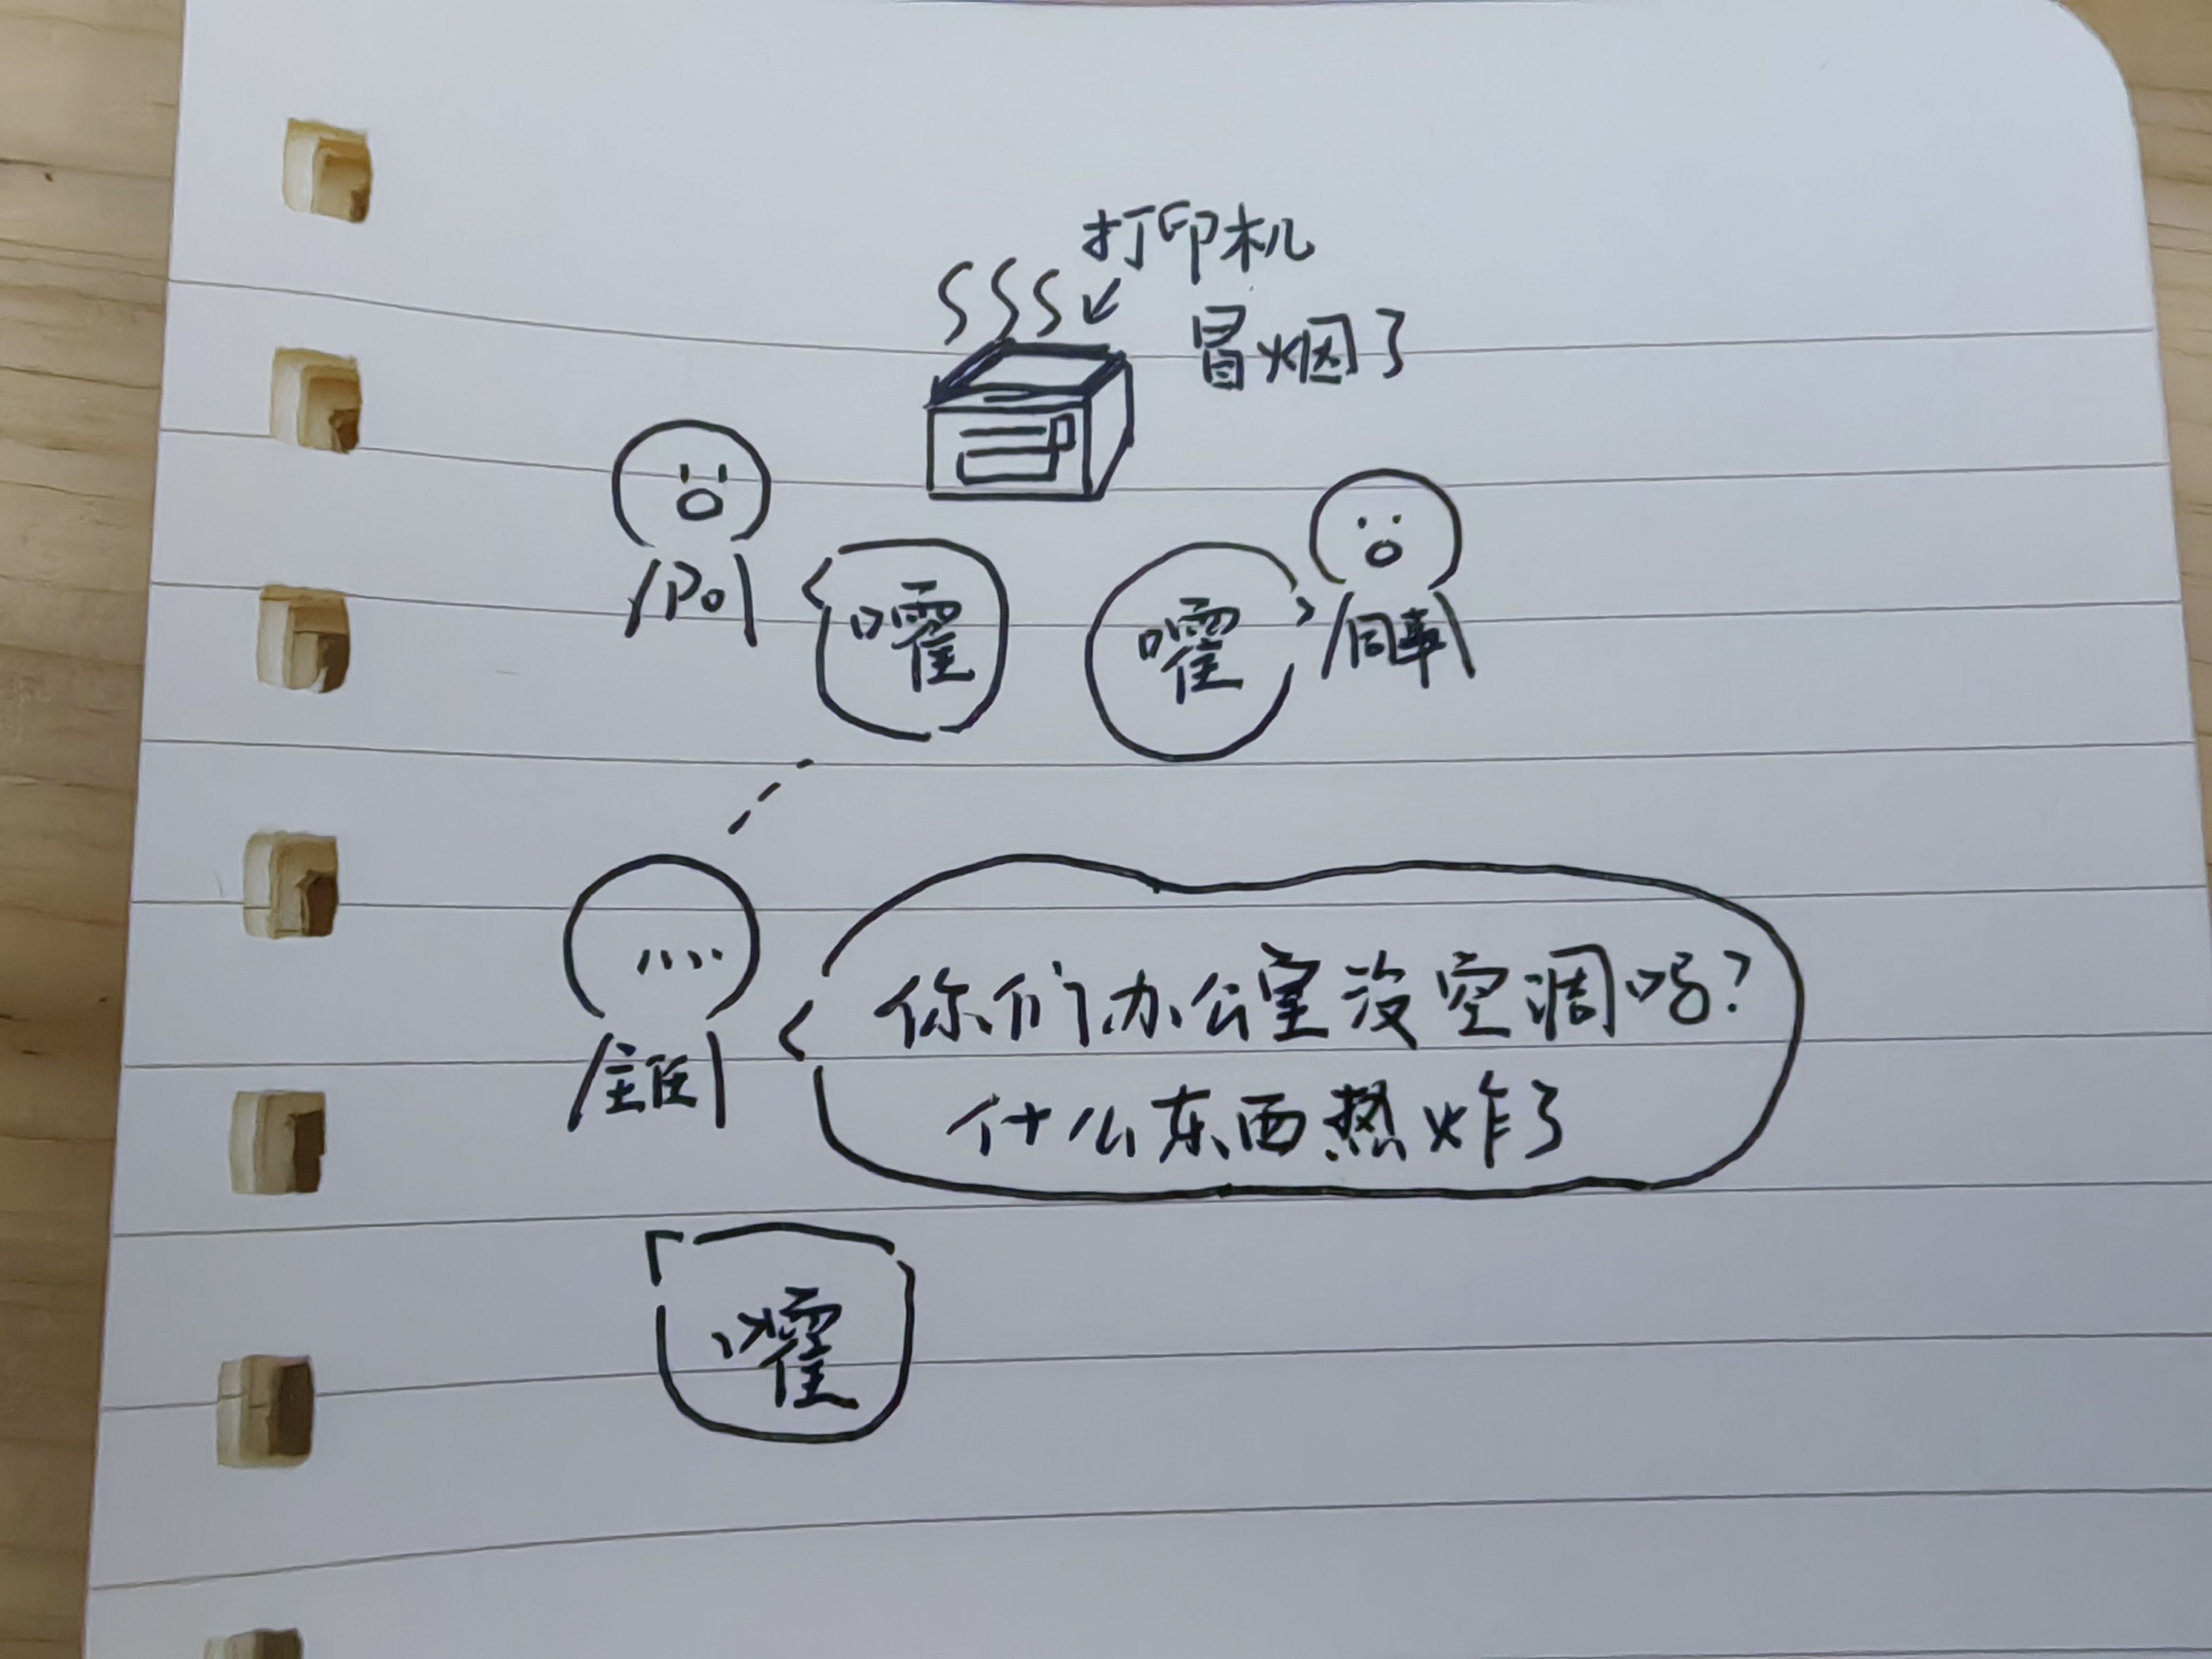 打印机
冒烟了
po
嚯
嚯
同事
你们办公室没空调吗?
什么东西热炸了
主任
嚯